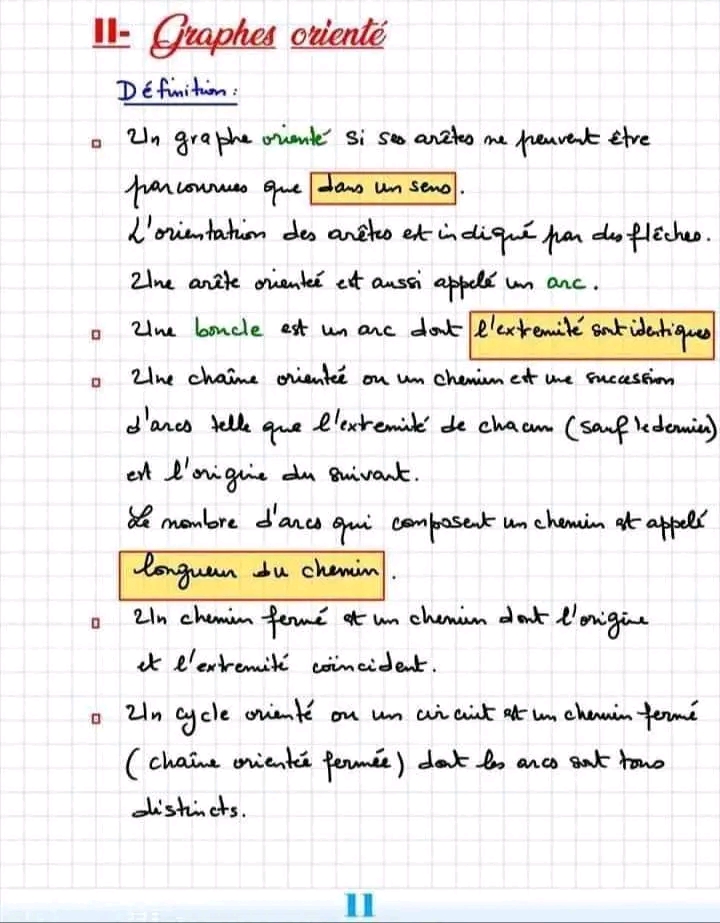 II- Graphes orienté
Définition :
Un graphe orienté si ses arêtes ne peuvent être
parcourrues que dans un sens.
L'orientation des arêtes est indiqué par des flèches.
Une arête orienteé est aussi appelé un arc.
Une boucle est un arc dont l'extremité sont identiques
Une chaîne orienteé ou un chemin est une succession
d'arcs telle que l'extremité de chacun (sauf le dernier)
est l'origine du suivant.
Le nombre d'arcs qui composent un chemin est appelé
longueur du chemin.
Un chemin fermé est un chemin dont l'origine
et l'extremité coïncident.
Un cycle orienté ou un circuit est un chemin fermé
(chaîne orienteé fermée) dont les arcs sont tous
distincts.
11